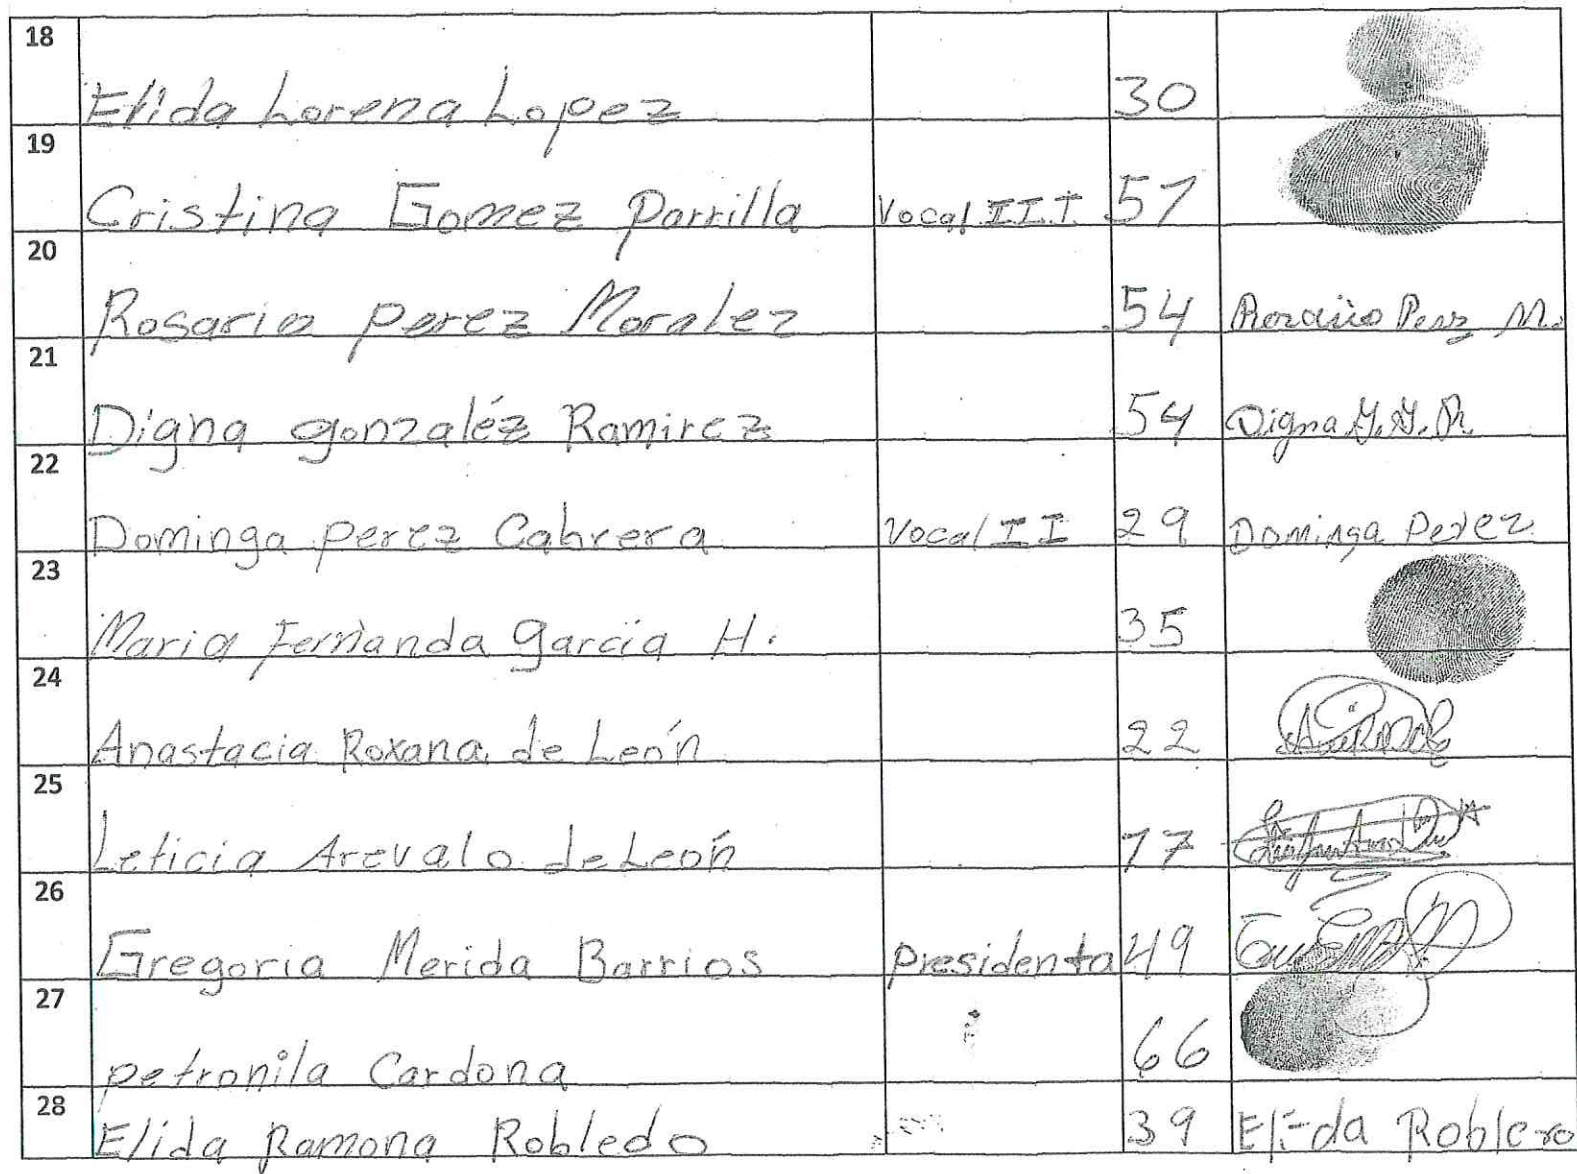 18 Elida Lorena Lopez 30
19 Cristina Gomez Parrilla Vocal III 57
20 Rosario perez Moralez 54 Rozario Perez M.
21 Digna gonzaléz Ramirez 54 Digna G. G. R.
22 Dominga perez Cabrera Vocal II 29 Dominga Perez
23 Maria Fernanda garcia H. 35
24 Anastacia Roxana de León 22
25 Leticia Arevalo de León 17
26 Gregoria Merida Barrios presidenta 49
27 petronila Cardona 66
28 Elida Ramona Robledo 39 Elida Roblero